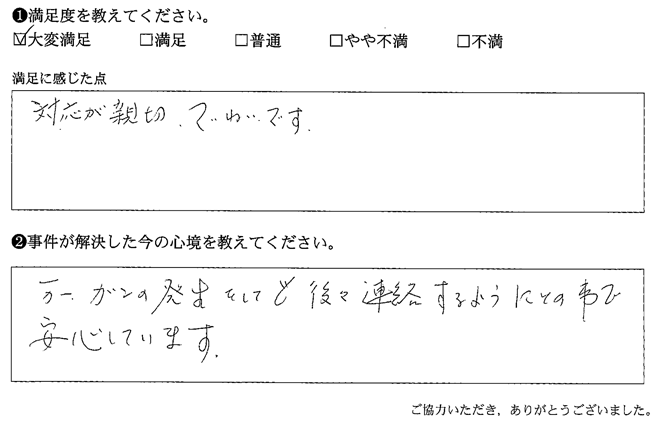 ❶満足度を教えてください。
☑大変満足 □満足 □普通 □やや不満 □不満
満足に感じた点
対応が親切、ていねいです。
❷事件が解決した今の心境を教えてください。
万一、ガンの発生をしても後々連絡するようにとの事で
安心しています。
ご協力いただき、ありがとうございました。